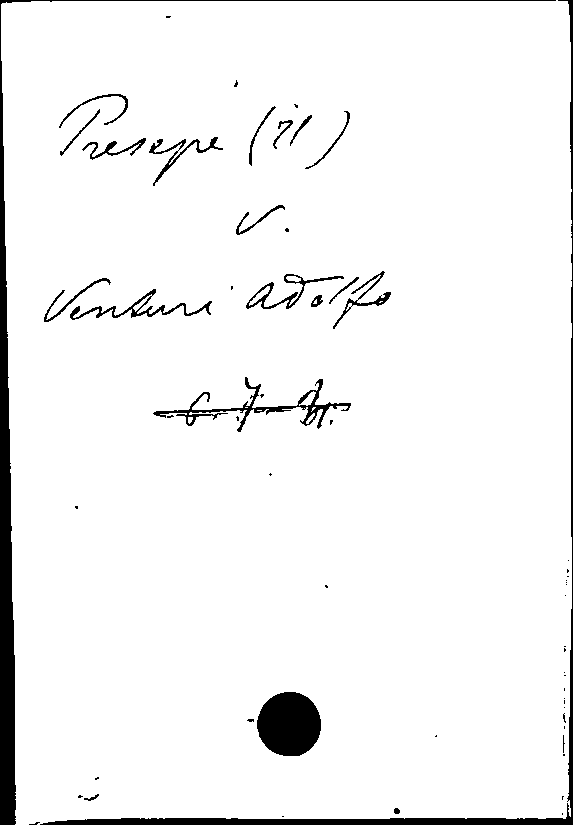 Presepe (il)
V.
Venturi Adolfo
6. 7.